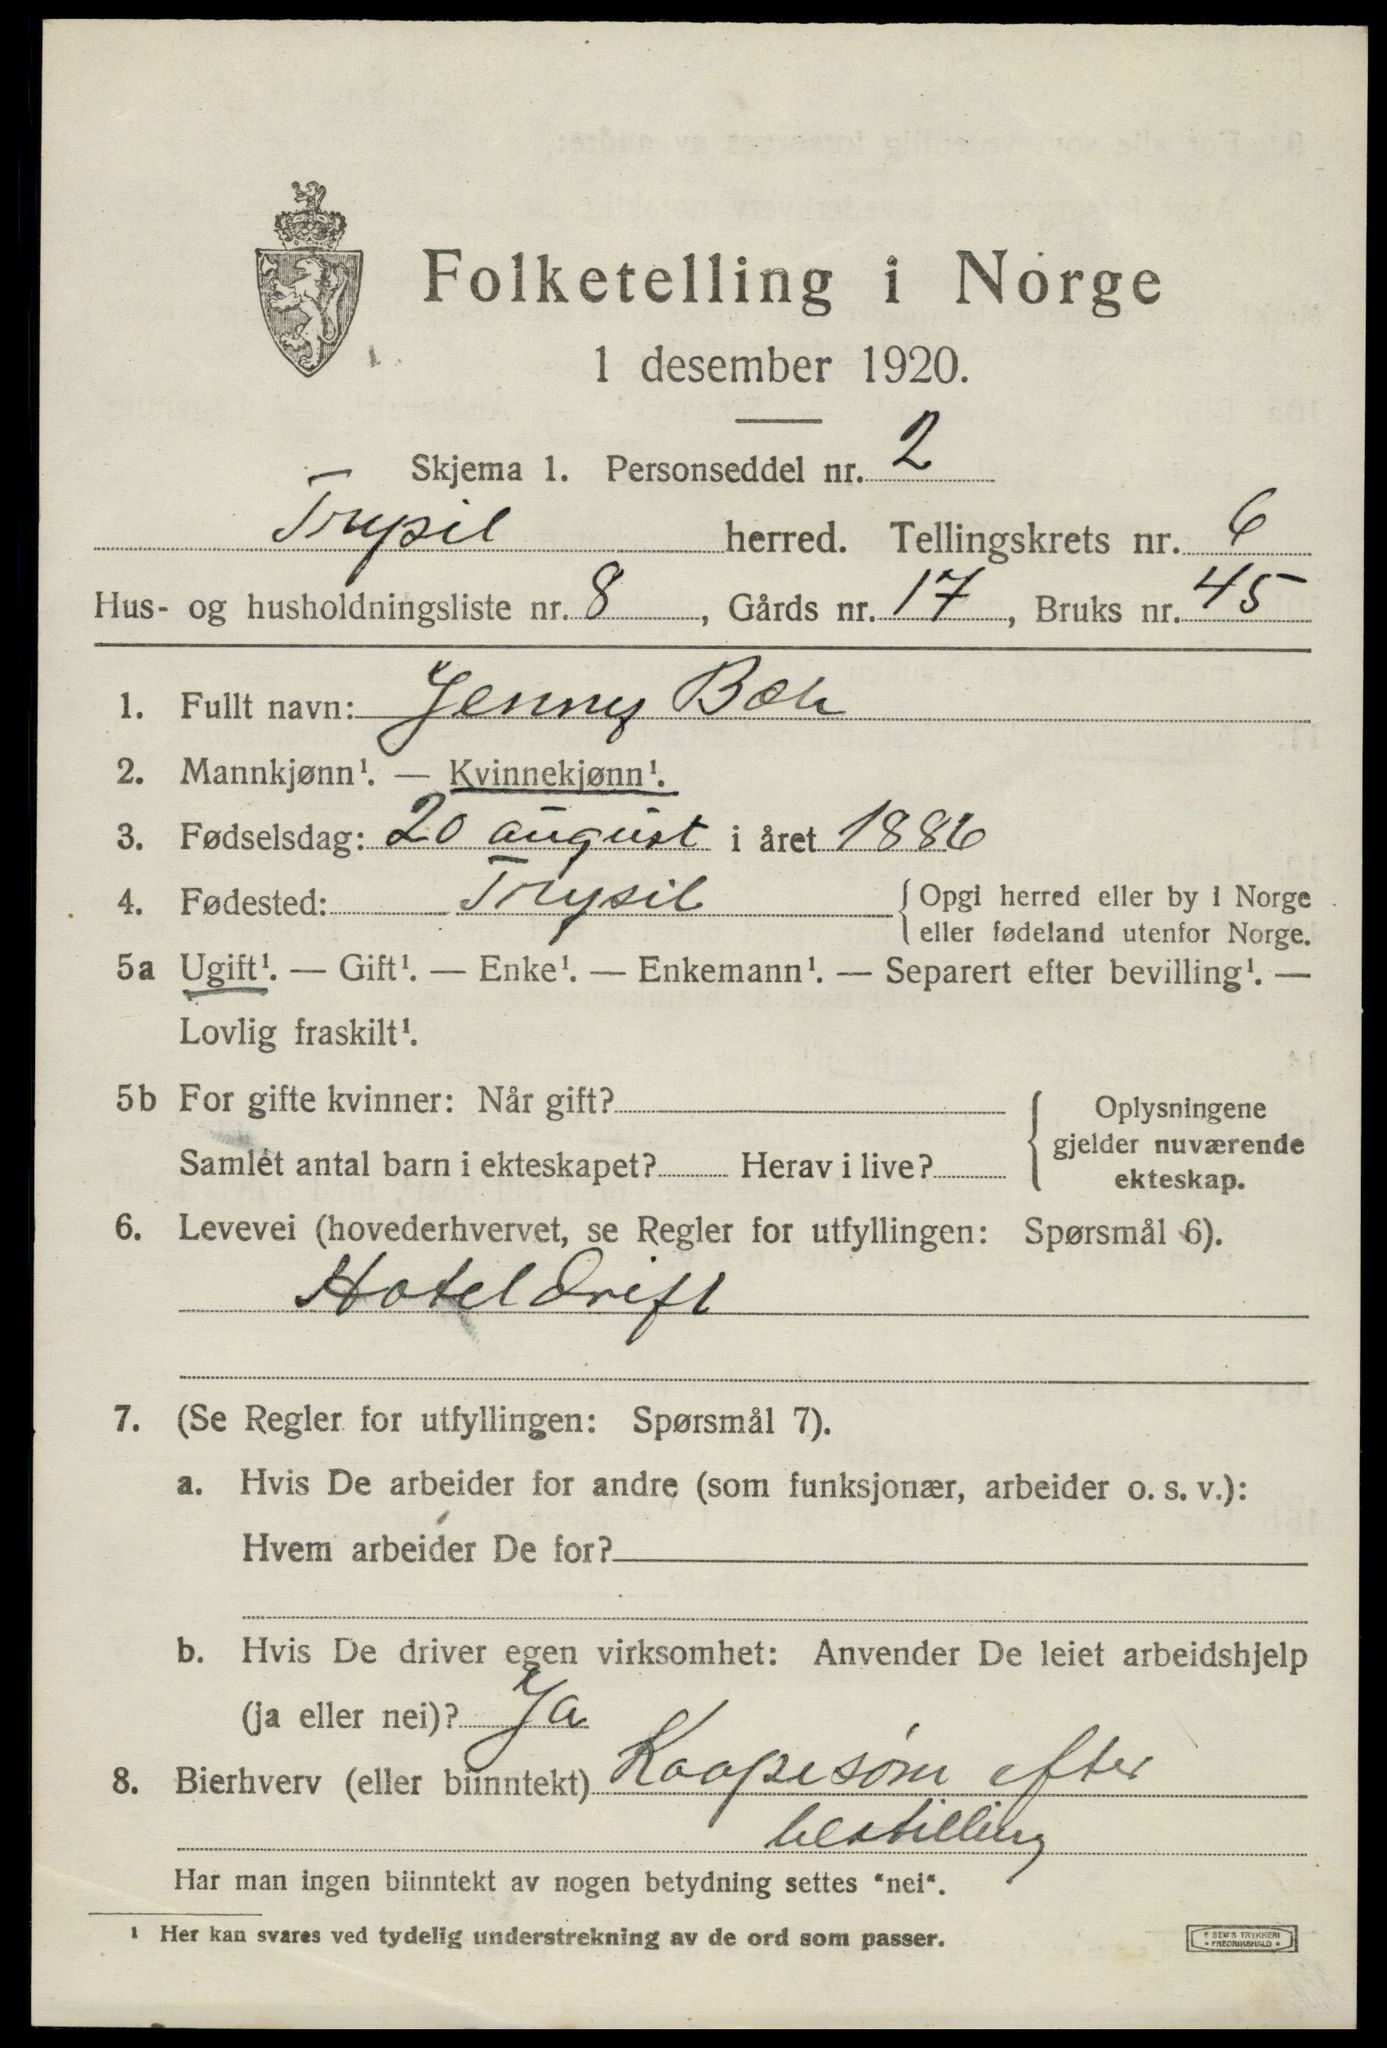 Folketelling i Norge
1 desember 1920.
Skjema 1. Personseddel nr. 2
Trysil herred. Tellingskrets nr. 6
Hus- og husholdningsliste nr. 8, Gårds nr. 17, Bruks nr. 45
1. Fullt navn: Jenny Bæk
2. Mannkjønn¹. — Kvinnekjønn¹.
3. Fødselsdag: 20 august i året 1886
4. Fødested: Trysil { Opgi herred eller by i Norge
eller fødeland utenfor Norge.
5a Ugift¹. — Gift¹. — Enke¹. — Enkemann¹. — Separert efter bevilling¹. —
Lovlig fraskilt¹.
5b For gifte kvinner: Når gift?
Samlet antal barn i ekteskapet? Herav i live?
{ Oplysningene
gjelder nuværende
ekteskap.
6. Levevei (hovederhvervet, se Regler for utfyllingen: Spørsmål 6).
Hoteldrift
7. (Se Regler for utfyllingen: Spørsmål 7).
a. Hvis De arbeider for andre (som funksjonær, arbeider o. s. v.):
Hvem arbeider De for?
b. Hvis De driver egen virksomhet: Anvender De leiet arbeidshjelp
(ja eller nei)? Ja
8. Bierhverv (eller biinntekt) Kaapesøm efter
bestilling
Har man ingen biinntekt av nogen betydning settes "nei".
¹ Her kan svares ved tydelig understrekning av de ord som passer.
E SEM'S TRYKKERI
• FREDRIKSHALD •